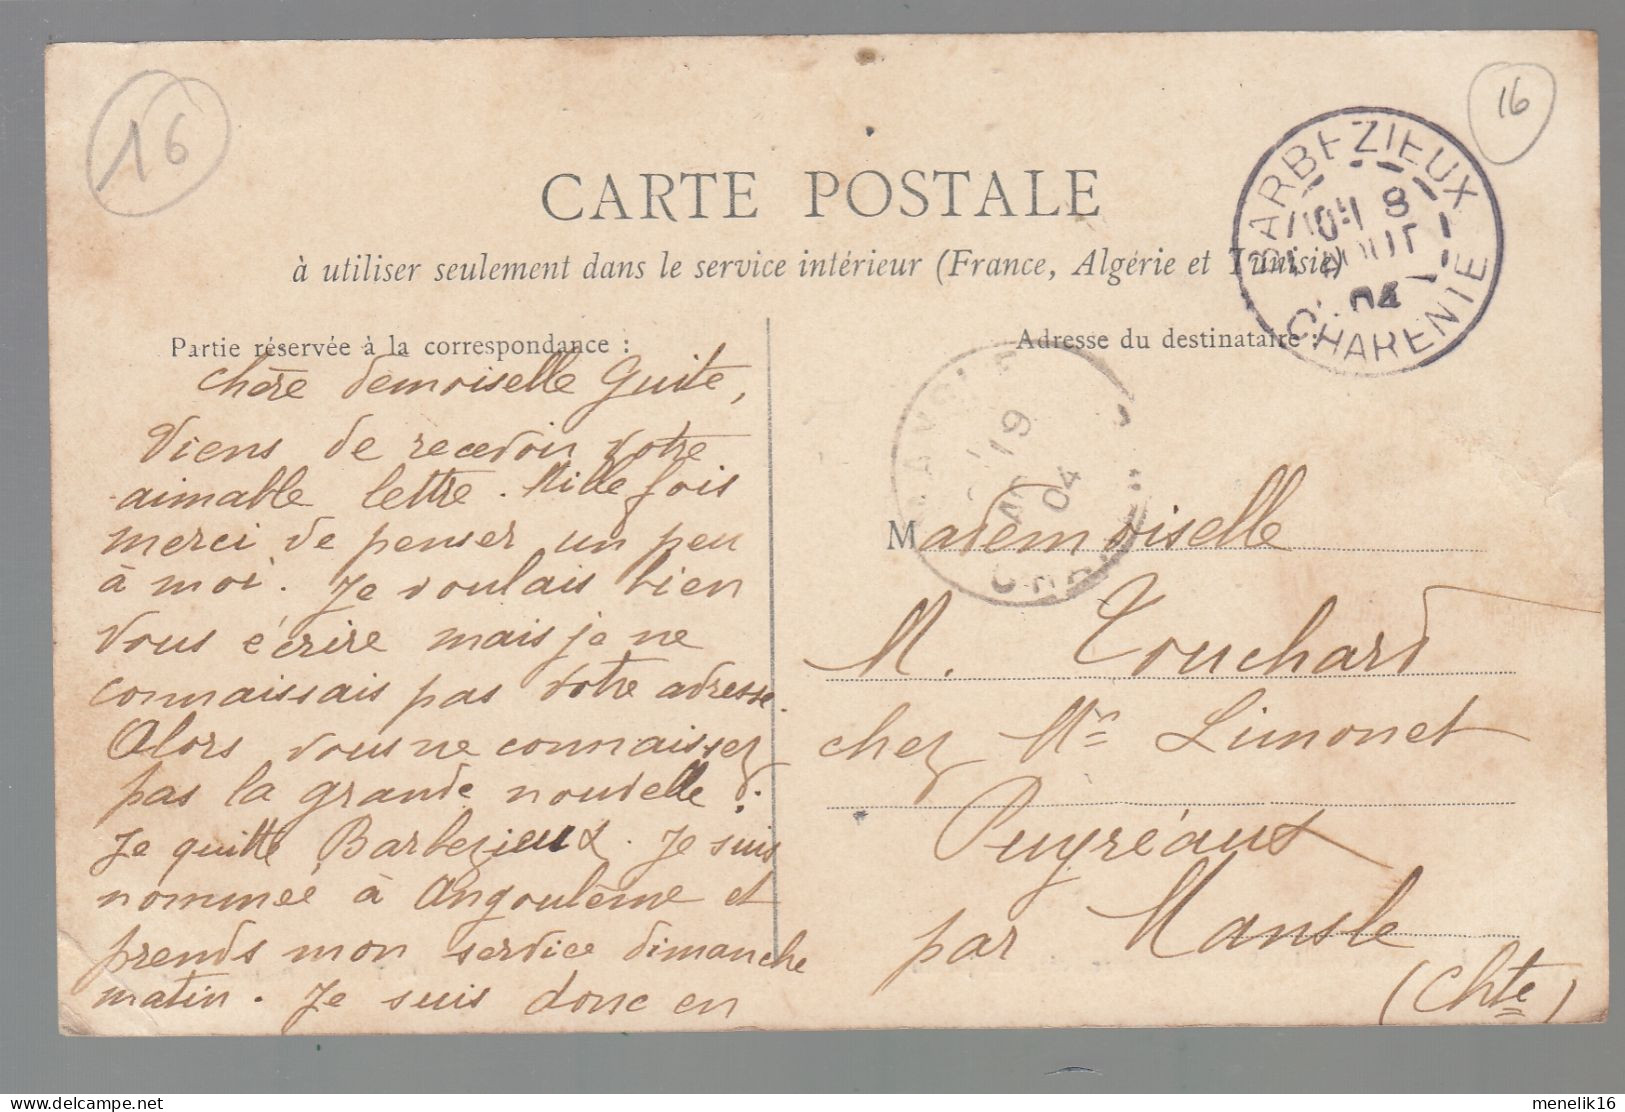 16
16
CARTE POSTALE
à utiliser seulement dans le service intérieur (France, Algérie et Tunisie)
BARBEZIEUX
8
AOUT
04
CHARENTE
Partie réservée à la correspondance :
Chère demoiselle Guite,
Viens de recevoir votre
aimable lettre. Mille fois
merci de penser un peu
à moi. Je voulais bien
vous écrire mais je ne
connaissais pas votre adresse.
Alors vous ne connaissez
pas la grande nouvelle ?
Je quitte Barbezieux. Je suis
nommée à Angoulême et
prends mon service dimanche
matin. Je suis donc en
Adresse du destinataire :
19
04
Mademoiselle
M. Touchard
chez Mr Limonet
Puyréaux
par Mansle
(Chte)
delcampe.net
menelik16